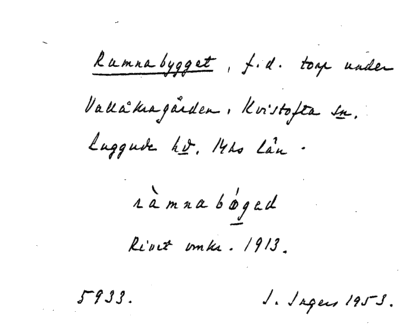 Ramnabygget, f.d. torp under
Vallåkragården, Kvistofta sn.
Luggude hd. Mhs län.
ràmnabǿged
Rivet omkr. 1913.
5933. I. Ingers 1953.